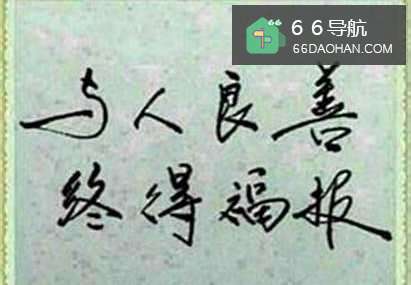 66导航
66DAOHAN.COM
与人良善
终得福报